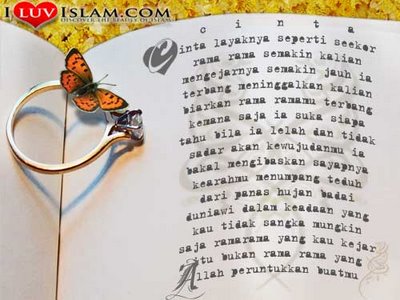 I LUV ISLAM.COM
DISCOVER THE BEAUTY OF ISLAM
c i n t a
Cinta layaknya seperti seekor
rama rama semakin kalian
mengejarnya semakin jauh ia
terbang meninggalkan kalian
biarkan rama ramamu terbang
kemana saja ia suka siapa
tahu bila ia lelah dan tidak
sadar akan kewujudanmu ia
bakal mengibaskan sayapnya
kearahmu menumpang teduh
dari panas hujan badai
duniawi dalam keadaan yang
kau tidak sangka mungkin
saja ramarama yang kau kejar
itu bukan rama rama yang
Allah peruntukkan buatmu